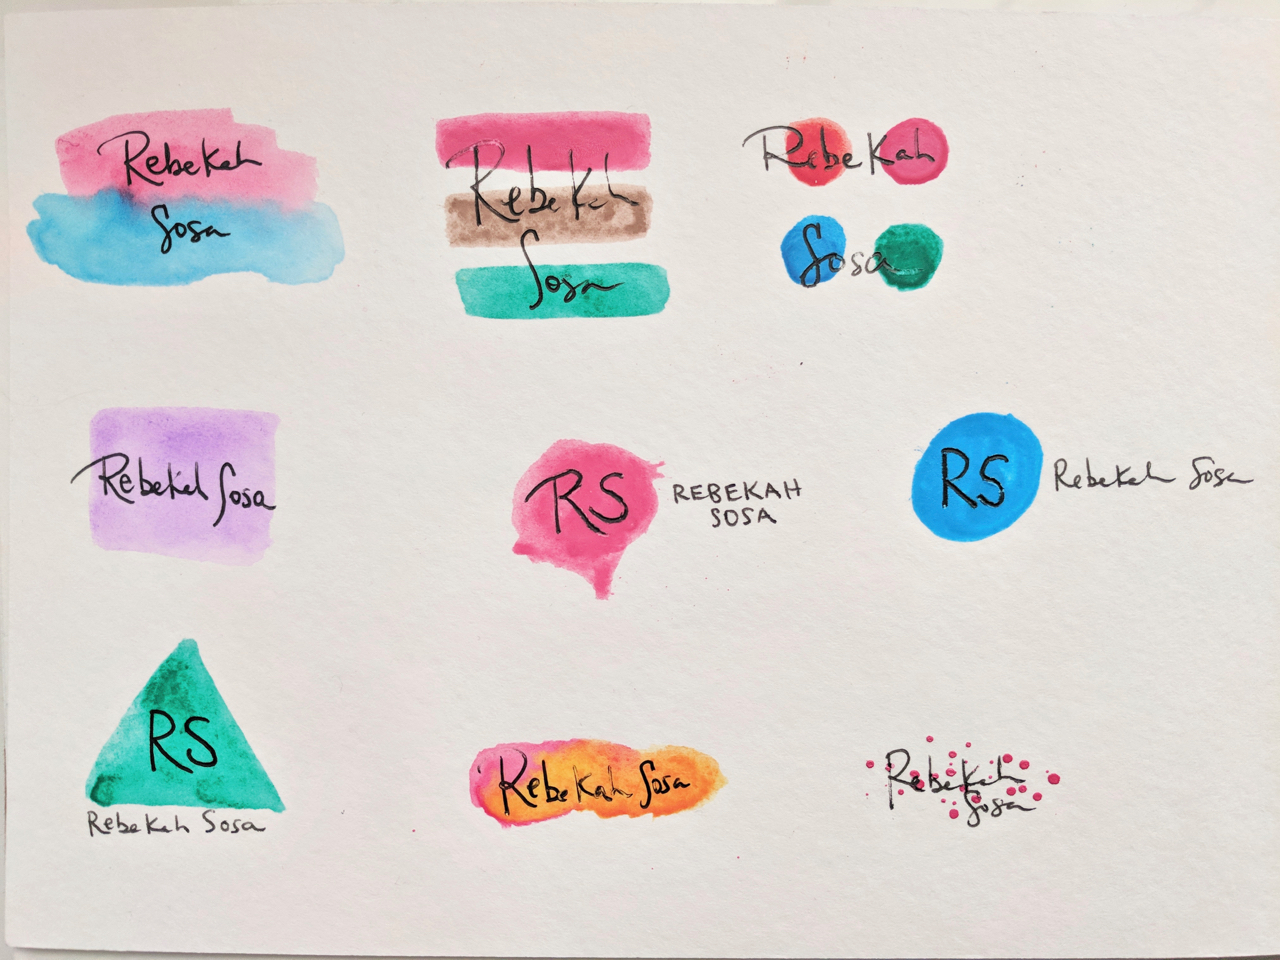 Rebekah
Sosa
Rebekah
Sosa
Rebekah
Sosa
Rebekah Sosa
RS
REBEKAH
SOSA
RS
Rebekah Sosa
RS
Rebekah Sosa
Rebekah Sosa
Rebekah
Sosa